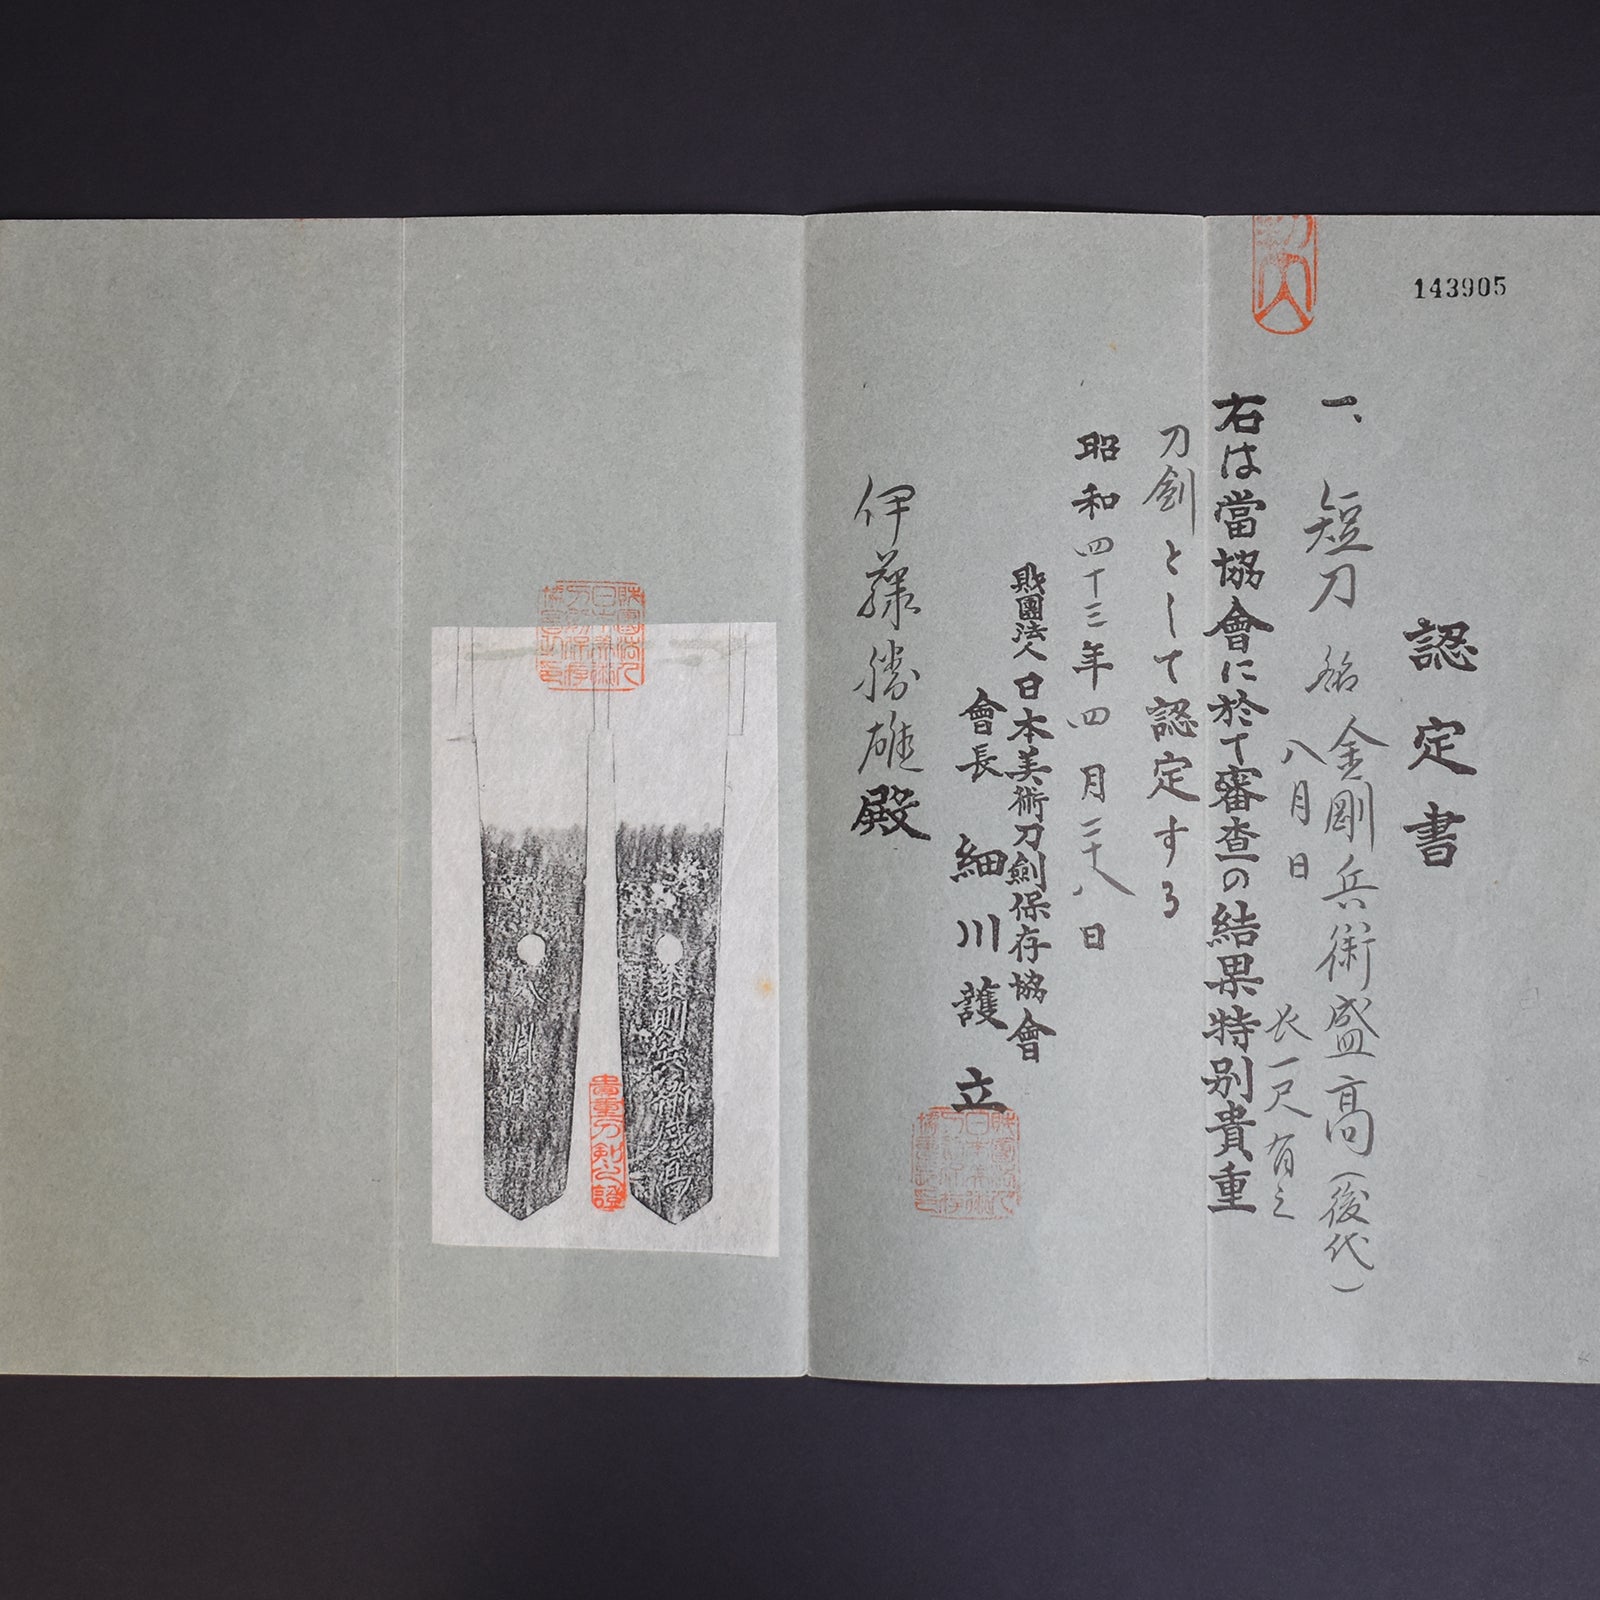 143905
認定書
一、短刀 銘 金剛兵衛盛高(後代)
八月日
長一尺有之
右は當協會に於て審査の結果特別貴重
刀剣として認定する
昭和四十三年四月二十八日
財團法人日本美術刀劍保存協會
會長 細川護立
伊藤勝雄殿
金剛兵衛盛高
八月日
貴重刀剣之證